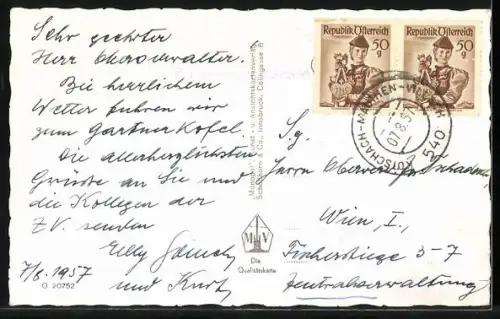 Sehr geehrter
Herr Oberverwalter.
Bei herrlichem
Wetter fuhren wir
zum Gartner Kofel.
Die allerherzlichsten
Grüße an Sie und
die Kollegen der
ZV. senden
Elly
und Kurt
7/8. 1957
O 20752
Innsbruck, Colingasse
M V
Die
Qualitätskarte
Republik Österreich
50
g
Republik Österreich
50
g
KÖTSCHACH-MAUTHEN-VILLACH
07.8.57
540
S.g.
Herrn
Wien, I.,
Fischerstiege 3-7
Zentralverwaltung